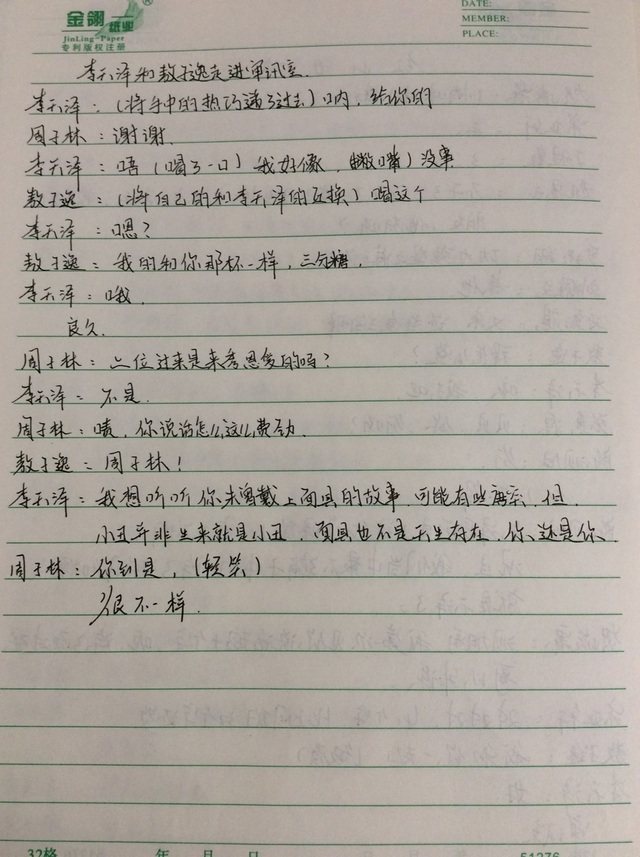 金翎
纸业
®
JinLing-Paper
专利版权注册
DATE:
MEMBER:
PLACE:
李天泽和敖子逸走进审讯室.
李天泽：(将手中的热巧递了过去) 呐，给你的
周子林：谢谢.
李天泽：唔 (喝了一口) 我好像，(撇嘴) 没事
敖子逸：(将自己的和李天泽的互换) 喝这个
李天泽：嗯？
敖子逸：我的和你那杯一样，三分糖.
李天泽：哦.
良久.
周子林：二位过来是来秀恩爱的吗？
李天泽：不是.
周子林：啧，你说话怎么这么费劲.
敖子逸：周子林！
李天泽：我想听听你未曾戴上面具的故事，可能有些唐突，但，
小丑并非生来就是小丑，面具也不是天生存在，你，还是你.
周子林：你到是，(轻笑)
很不一样.
32格
年 月 日
51276